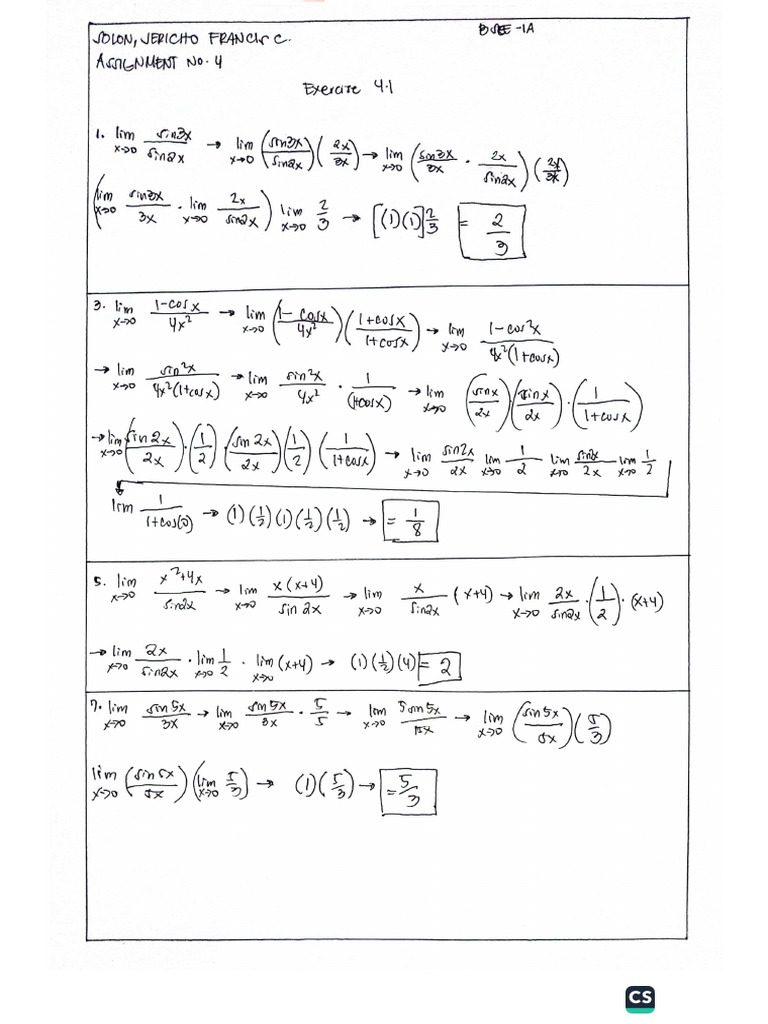 SOLON, JERICHO FRANCIS C. BSEE-1A
ASSIGNMENT NO. 4
Exercise 4.1
1. lim x→0 sin3x/sin2x → lim x→0 (sin3x/sin2x)(2x/3x) → lim x→0 (sin3x/3x · 2x/sin2x)(2x/3x)
(lim x→0 sin3x/3x · lim x→0 2x/sin2x) lim x→0 2/3 → [(1)(1)]2/3 = 2/3
3. lim x→0 1-cosx/4x² → lim x→0 (1-cosx/4x²)(1+cosx/1+cosx) → lim x→0 1-cos²x/4x²(1+cosx)
→ lim x→0 sin²x/4x²(1+cosx) → lim x→0 sin²x/4x² · 1/(1+cosx) → lim x→0 (sinx/2x)·(sinx/2x)·(1/1+cosx)
→ lim x→0 (sin2x/2x)·(1/2)·(sin2x/2x)(1/2)·(1/1+cosx) → lim x→0 sin2x/2x lim x→0 1/2 lim x→0 sin2x/2x lim x→0 1/2
lim 1/1+cos(0) → (1)(1/2)(1)(1/2)(1/2) → = 1/8
5. lim x→0 x²+4x/sin2x → lim x→0 x(x+4)/sin2x → lim x→0 x/sin2x (x+4) → lim x→0 2x/sin2x·(1/2)·(x+4)
→ lim x→0 2x/sin2x · lim x→0 1/2 · lim x→0 (x+4) → (1)(1/2)(4) = 2
7. lim x→0 sin5x/3x → lim x→0 sin5x/3x · 5/5 → lim x→0 5sin5x/15x → lim x→0 (sin5x/5x)(5/3)
lim x→0 (sin5x/5x)(lim x→0 5/3) → (1)(5/3) → = 5/3
CS